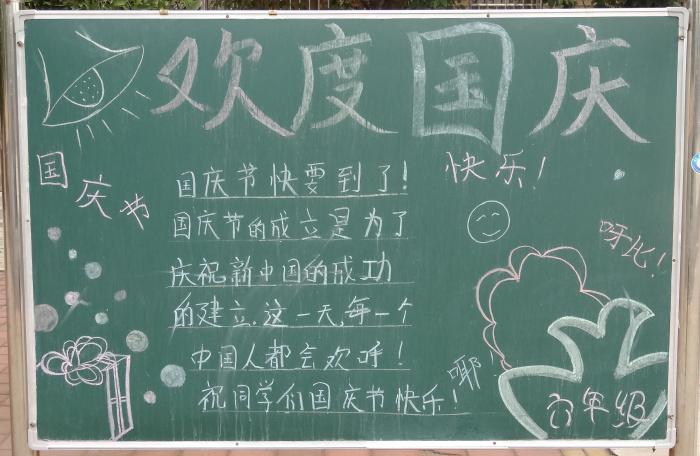 欢度国庆
国庆节
快乐!
国庆节快要到了!
国庆节的成立是为了
庆祝新中国的成功
的建立.这一天,每一个
中国人都会欢呼!
祝同学们国庆节快乐!
耶!
呀比!
六年级